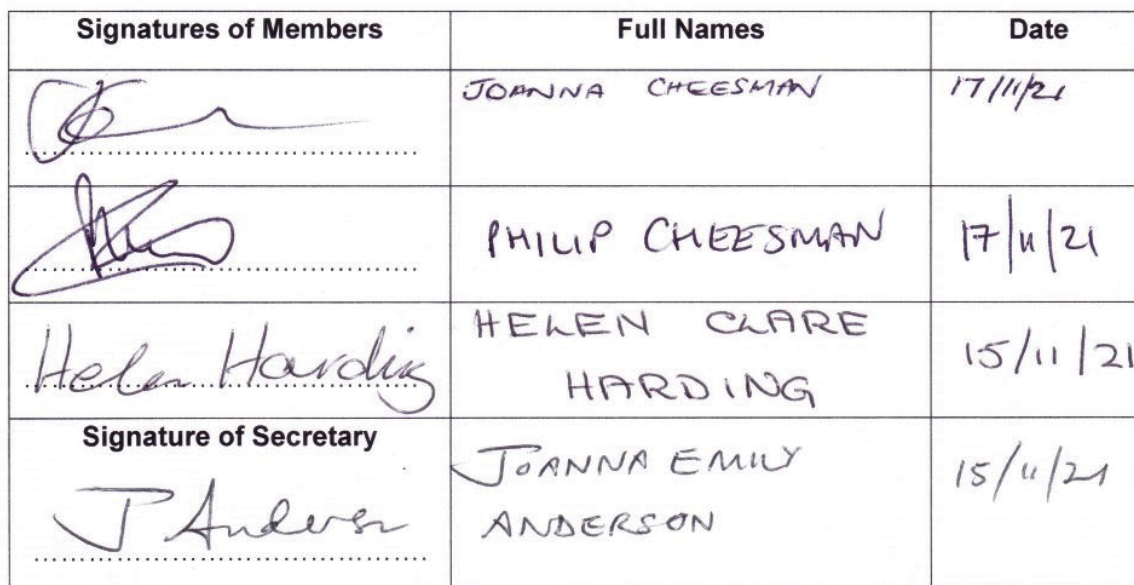 Signatures of Members Full Names Date
JOANNA CHEESMAN 17/11/21
PHILIP CHEESMAN 17/11/21
HELEN CLARE
Helen Harding HARDING 15/11/21
Signature of Secretary
JOANNA EMILY
J Anderson ANDERSON 15/11/21